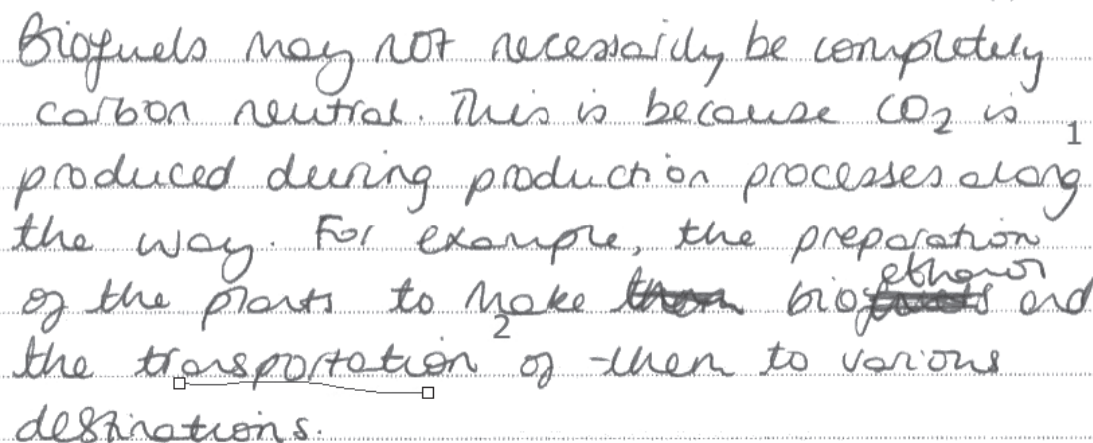 Biofuels may not necessarily be completely
carbon neutral. This is because CO2 is
1
produced during production processes along
the way. For example, the preparation
ethanol
of the plants to make them biofuels and
2
the transportation of them to various
destinations.